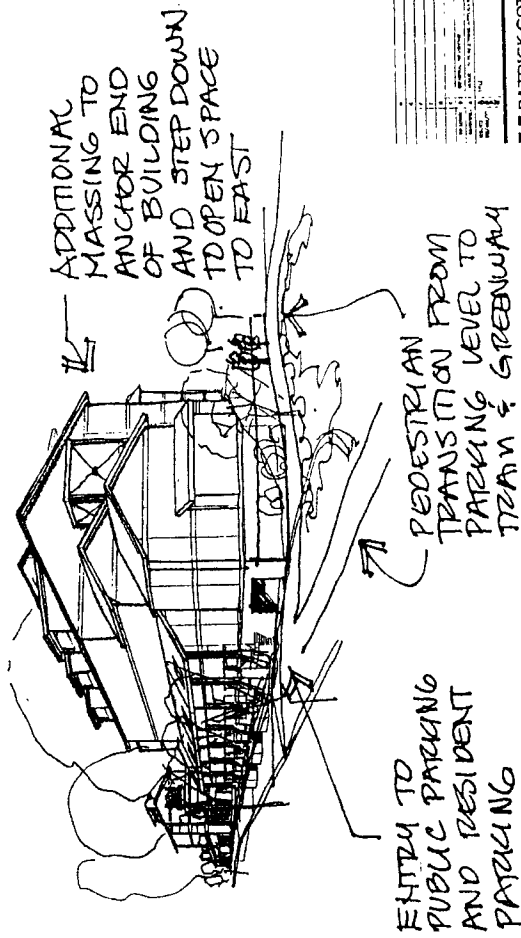 ADDITIONAL
MASSING TO
ANCHOR END
OF BUILDING
AND STEP DOWN
TO OPEN SPACE
TO EAST
PEDESTRIAN
TRANSITION FROM
PARKING LEVEL TO
TRAM & GREENWAY
ENTRY TO
PUBLIC PARKING
AND RESIDENT
PARKING